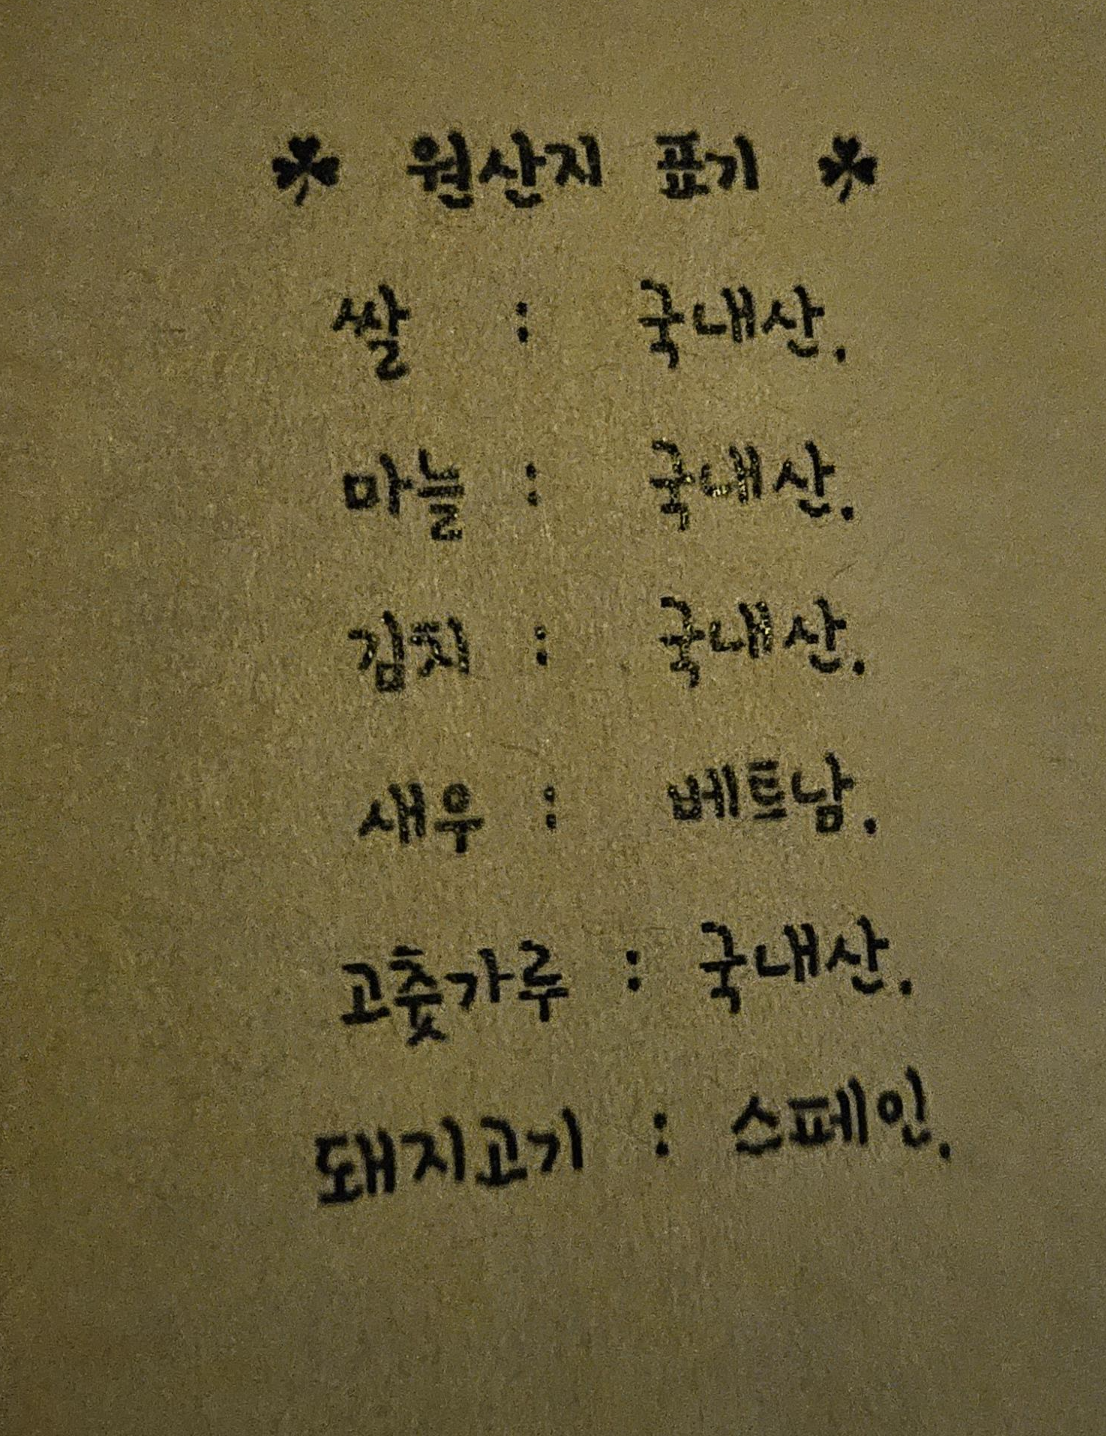 ☘ 원산지 표기 ☘
쌀 : 국내산.
마늘 : 국내산.
김치 : 국내산.
새우 : 베트남.
고춧가루 : 국내산.
돼지고기 : 스페인.